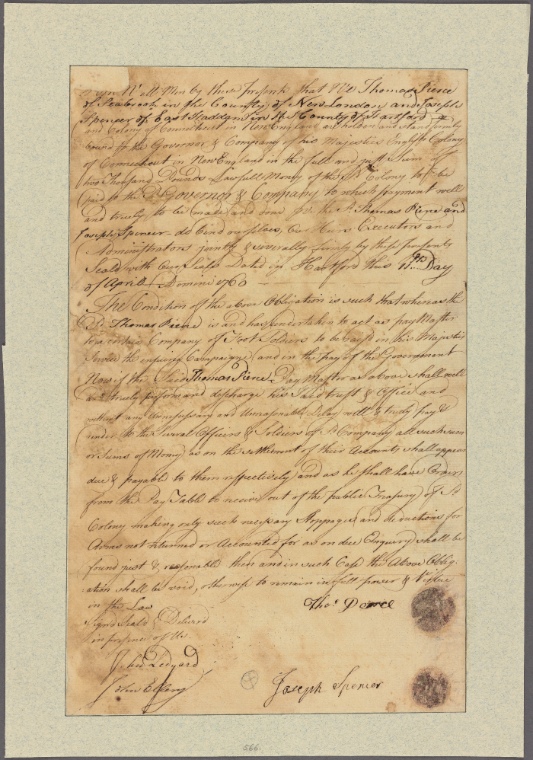 Know all Men by these Presents that We Thomas Pierce
of Seabrook in the County of New London and Joseph
Spencer of East Haddam in the County of Hartford
and Colony of Connecticut in New England are holden and stand firmly
bound to the Governor & Company of his Majesties English Colony
of Connecticut in New England in the full and just Sum of
two Thousand Pounds Lawfull Money of the Sd Colony to be
paid to the Sd Governor & Company to which payment well
and truly to be made and done we the Sd Thomas Pierce and
Joseph Spencer do bind ourselves, our Heirs Executors and
Administrators jointly & severally firmly by these presents
Seald with our Seals Dated in Hartford this 11th Day
of April Domini 1760
The Condition of the above Obligation is such that whereas the
Sd Thomas Pierce is and has undertaken to act as pay Master
to a certain Company of Foot Soldiers to be raised in his Majesties
Service the ensuing Campaign and in the pay of the Government
Now if the Said Thomas Pierce Pay Master as above shall well
and truly perform and discharge his Said trust & Office and
without any unnecessary and Unreasonable Delay well & truly pay &
render to the several Officers & Soldiers of Sd Company all such sum
or Sums of Money as on the settlement of their Accounts shall appear
due & payable to them respectively and as he shall have Orders
from the Pay Table to receive out of the public Treasury of Sd
Colony making only such necessary stoppages and deductions for
Arms not returned or Accounted for as on due Enquiry shall be
found just & reasonable then and in such Case the Above Oblig-
ation shall be void, otherwise to remain in full power & Virtue
in the Law
Thos Pierce
Signd Seald & Delivered
in presence of Us
John Ledyard
John
Joseph Spencer
566